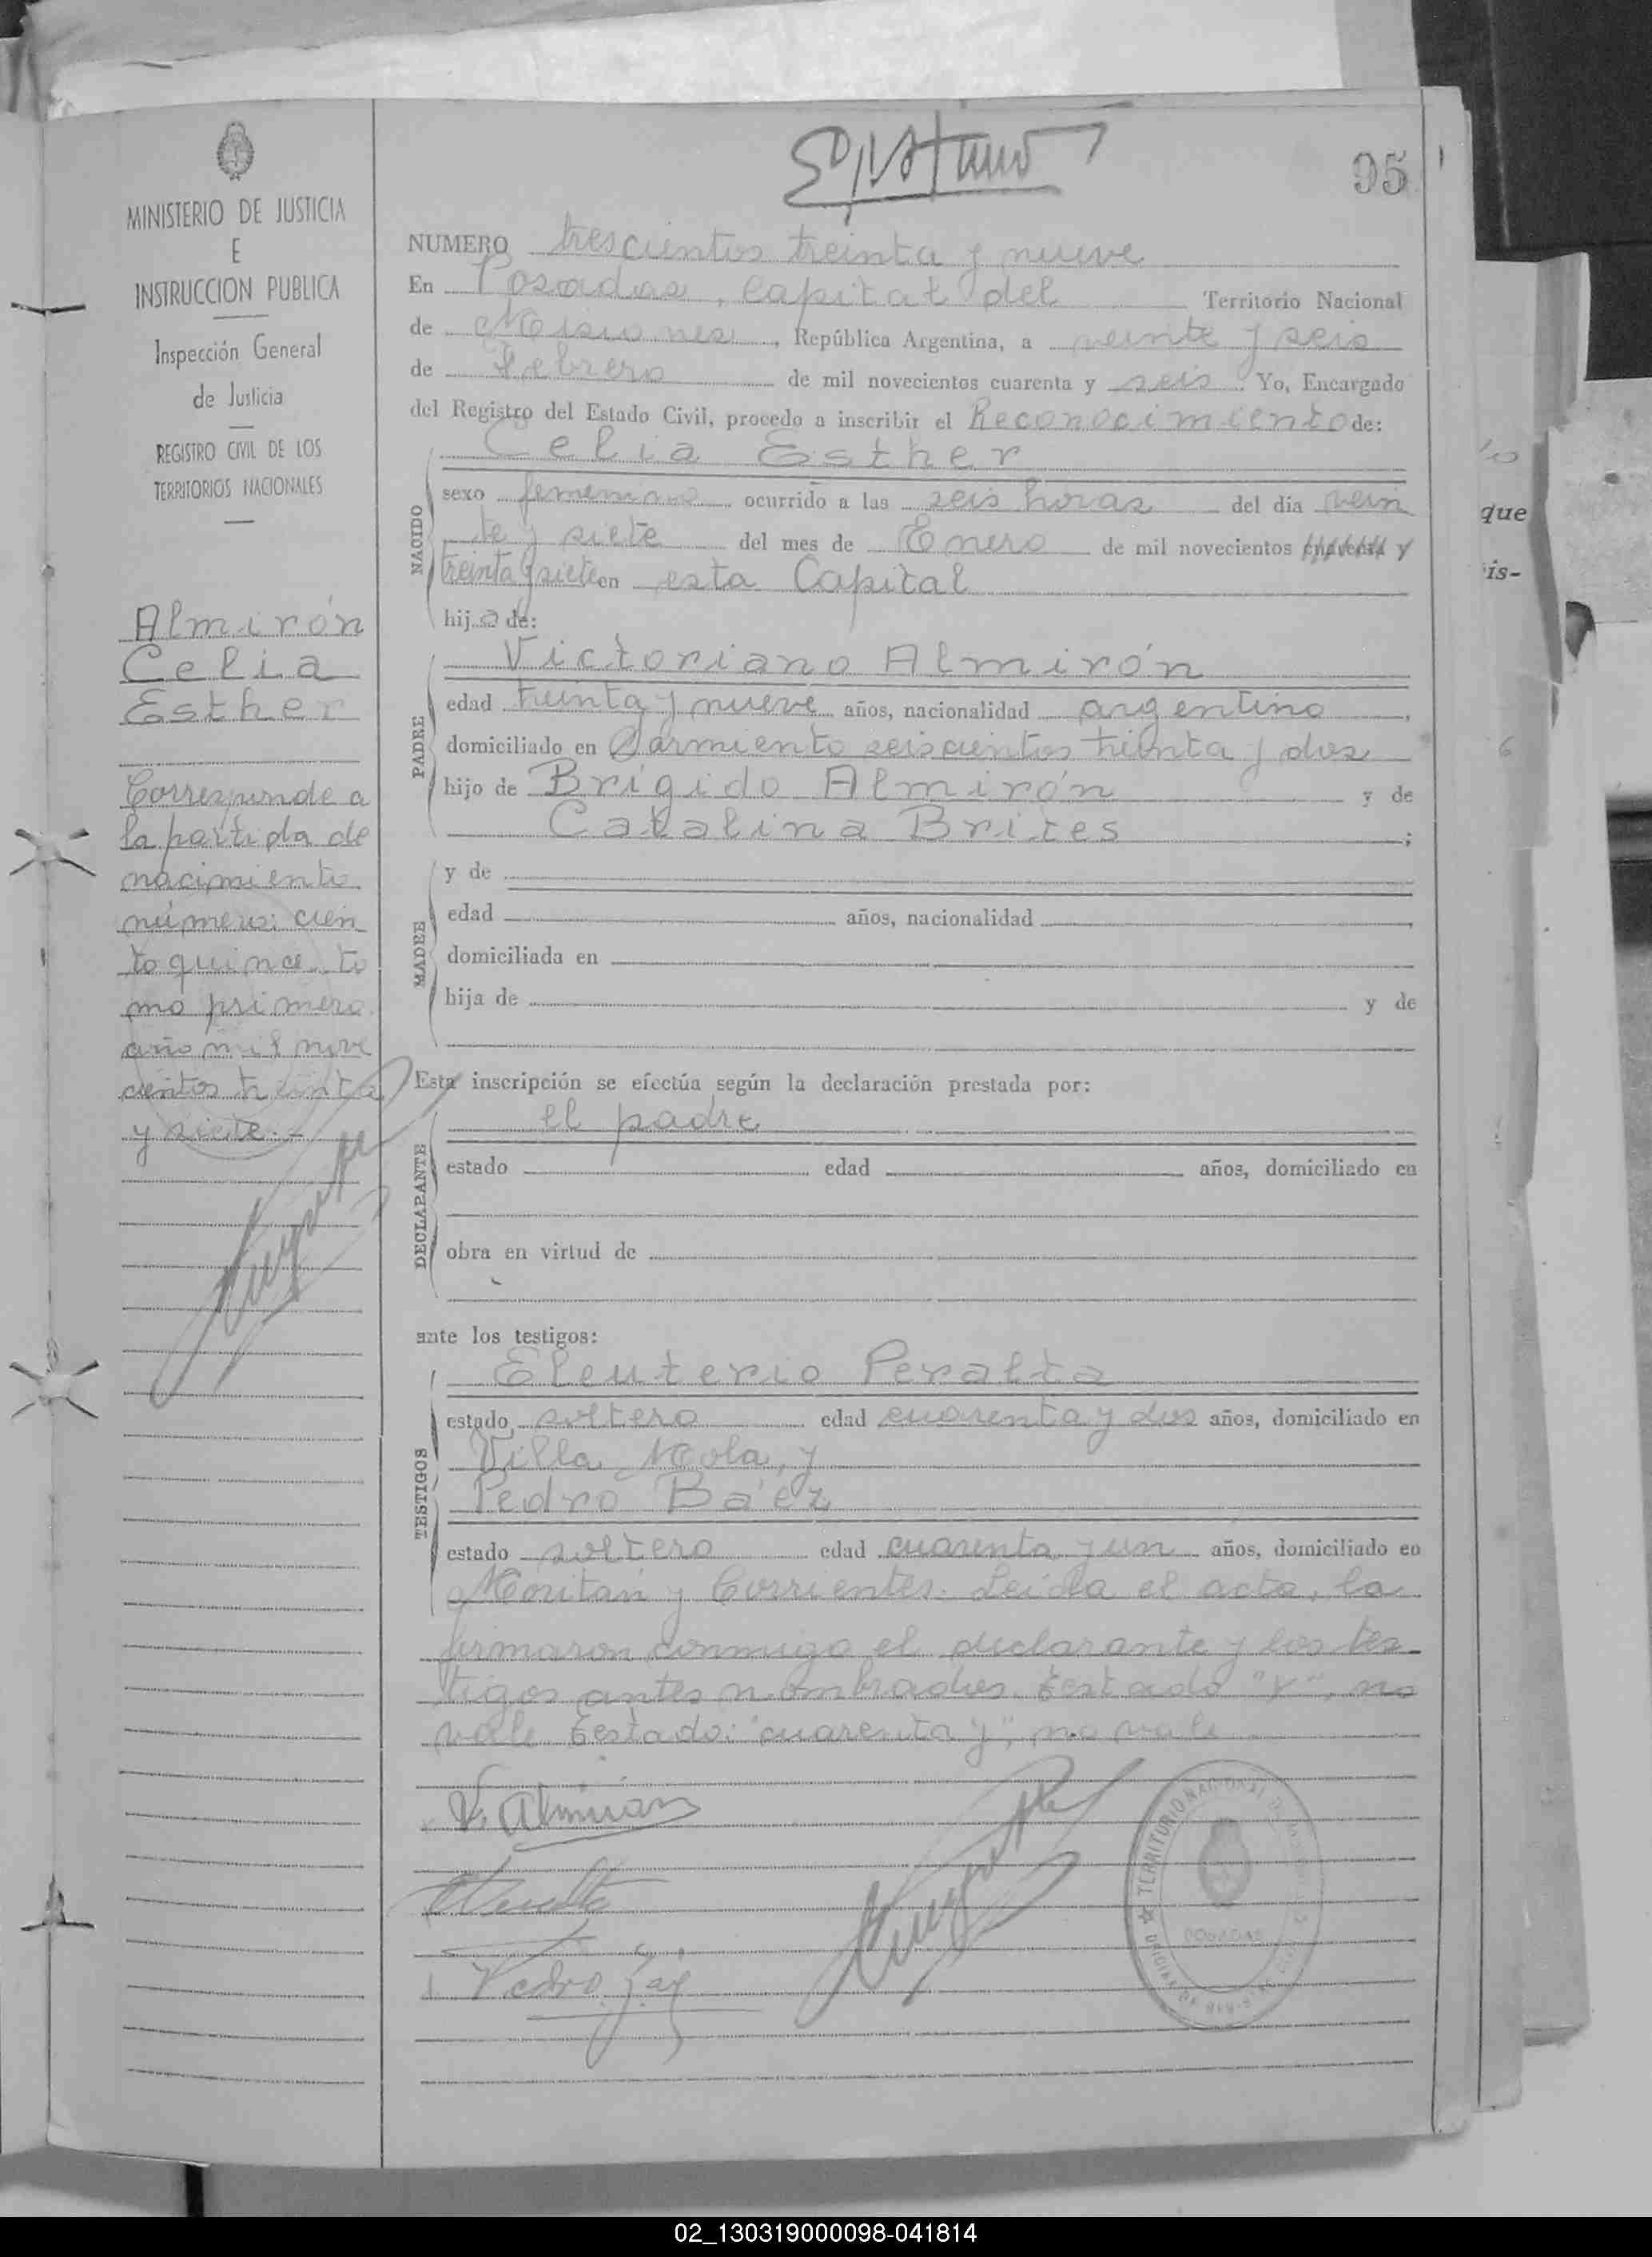 95
MINISTERIO DE JUSTICIA
E
INSTRUCCION PUBLICA
Inspección General
de Justicia
REGISTRO CIVIL DE LOS
TERRITORIOS NACIONALES
Almirón
Celia
Esther
Corresponde a
la partida de
nacimiento
número: cien
to quince to
mo primero
año mil nove
cientos treinta
y siete.-
NUMERO trescientos treinta y nueve
En Posadas, capital del Territorio Nacional
de Misiones, República Argentina, a veinte y seis
de Febrero de mil novecientos cuarenta y seis. Yo, Encargado
del Registro del Estado Civil, procedo a inscribir el Reconocimiento de:
Celia Esther
NACIDO
sexo femenino ocurrido a las seis horas del día vein
te y siete del mes de Enero de mil novecientos cuarenta y
treinta y siete en esta Capital
hija de:
PADRE
Victoriano Almirón
edad treinta y nueve años, nacionalidad argentino,
domiciliado en Sarmiento seiscientos treinta y dos
hijo de Brígido Almirón y de
Catalina Brites;
MADRE
y de
edad años, nacionalidad
domiciliada en
hija de y de
Esta inscripción se efectúa según la declaración prestada por:
el padre
DECLARANTE
estado edad años, domiciliado en
obra en virtud de
ante los testigos:
Eleuterio Peralta
TESTIGOS
estado soltero edad cuarenta y dos años, domiciliado en
Villa Mola, y
Pedro Báez
estado soltero edad cuarenta y un años, domiciliado en
Moritán y Corrientes. Leída el acta, la
firmaron conmigo el declarante y los tes-
tigos antes nombrados. testado "y", no
vale. testado: "cuarenta y", no vale
V. Almirón
Pedro
TERRITORIO NACIONAL
POSADAS
que
is-
6
02_130319000098-041814